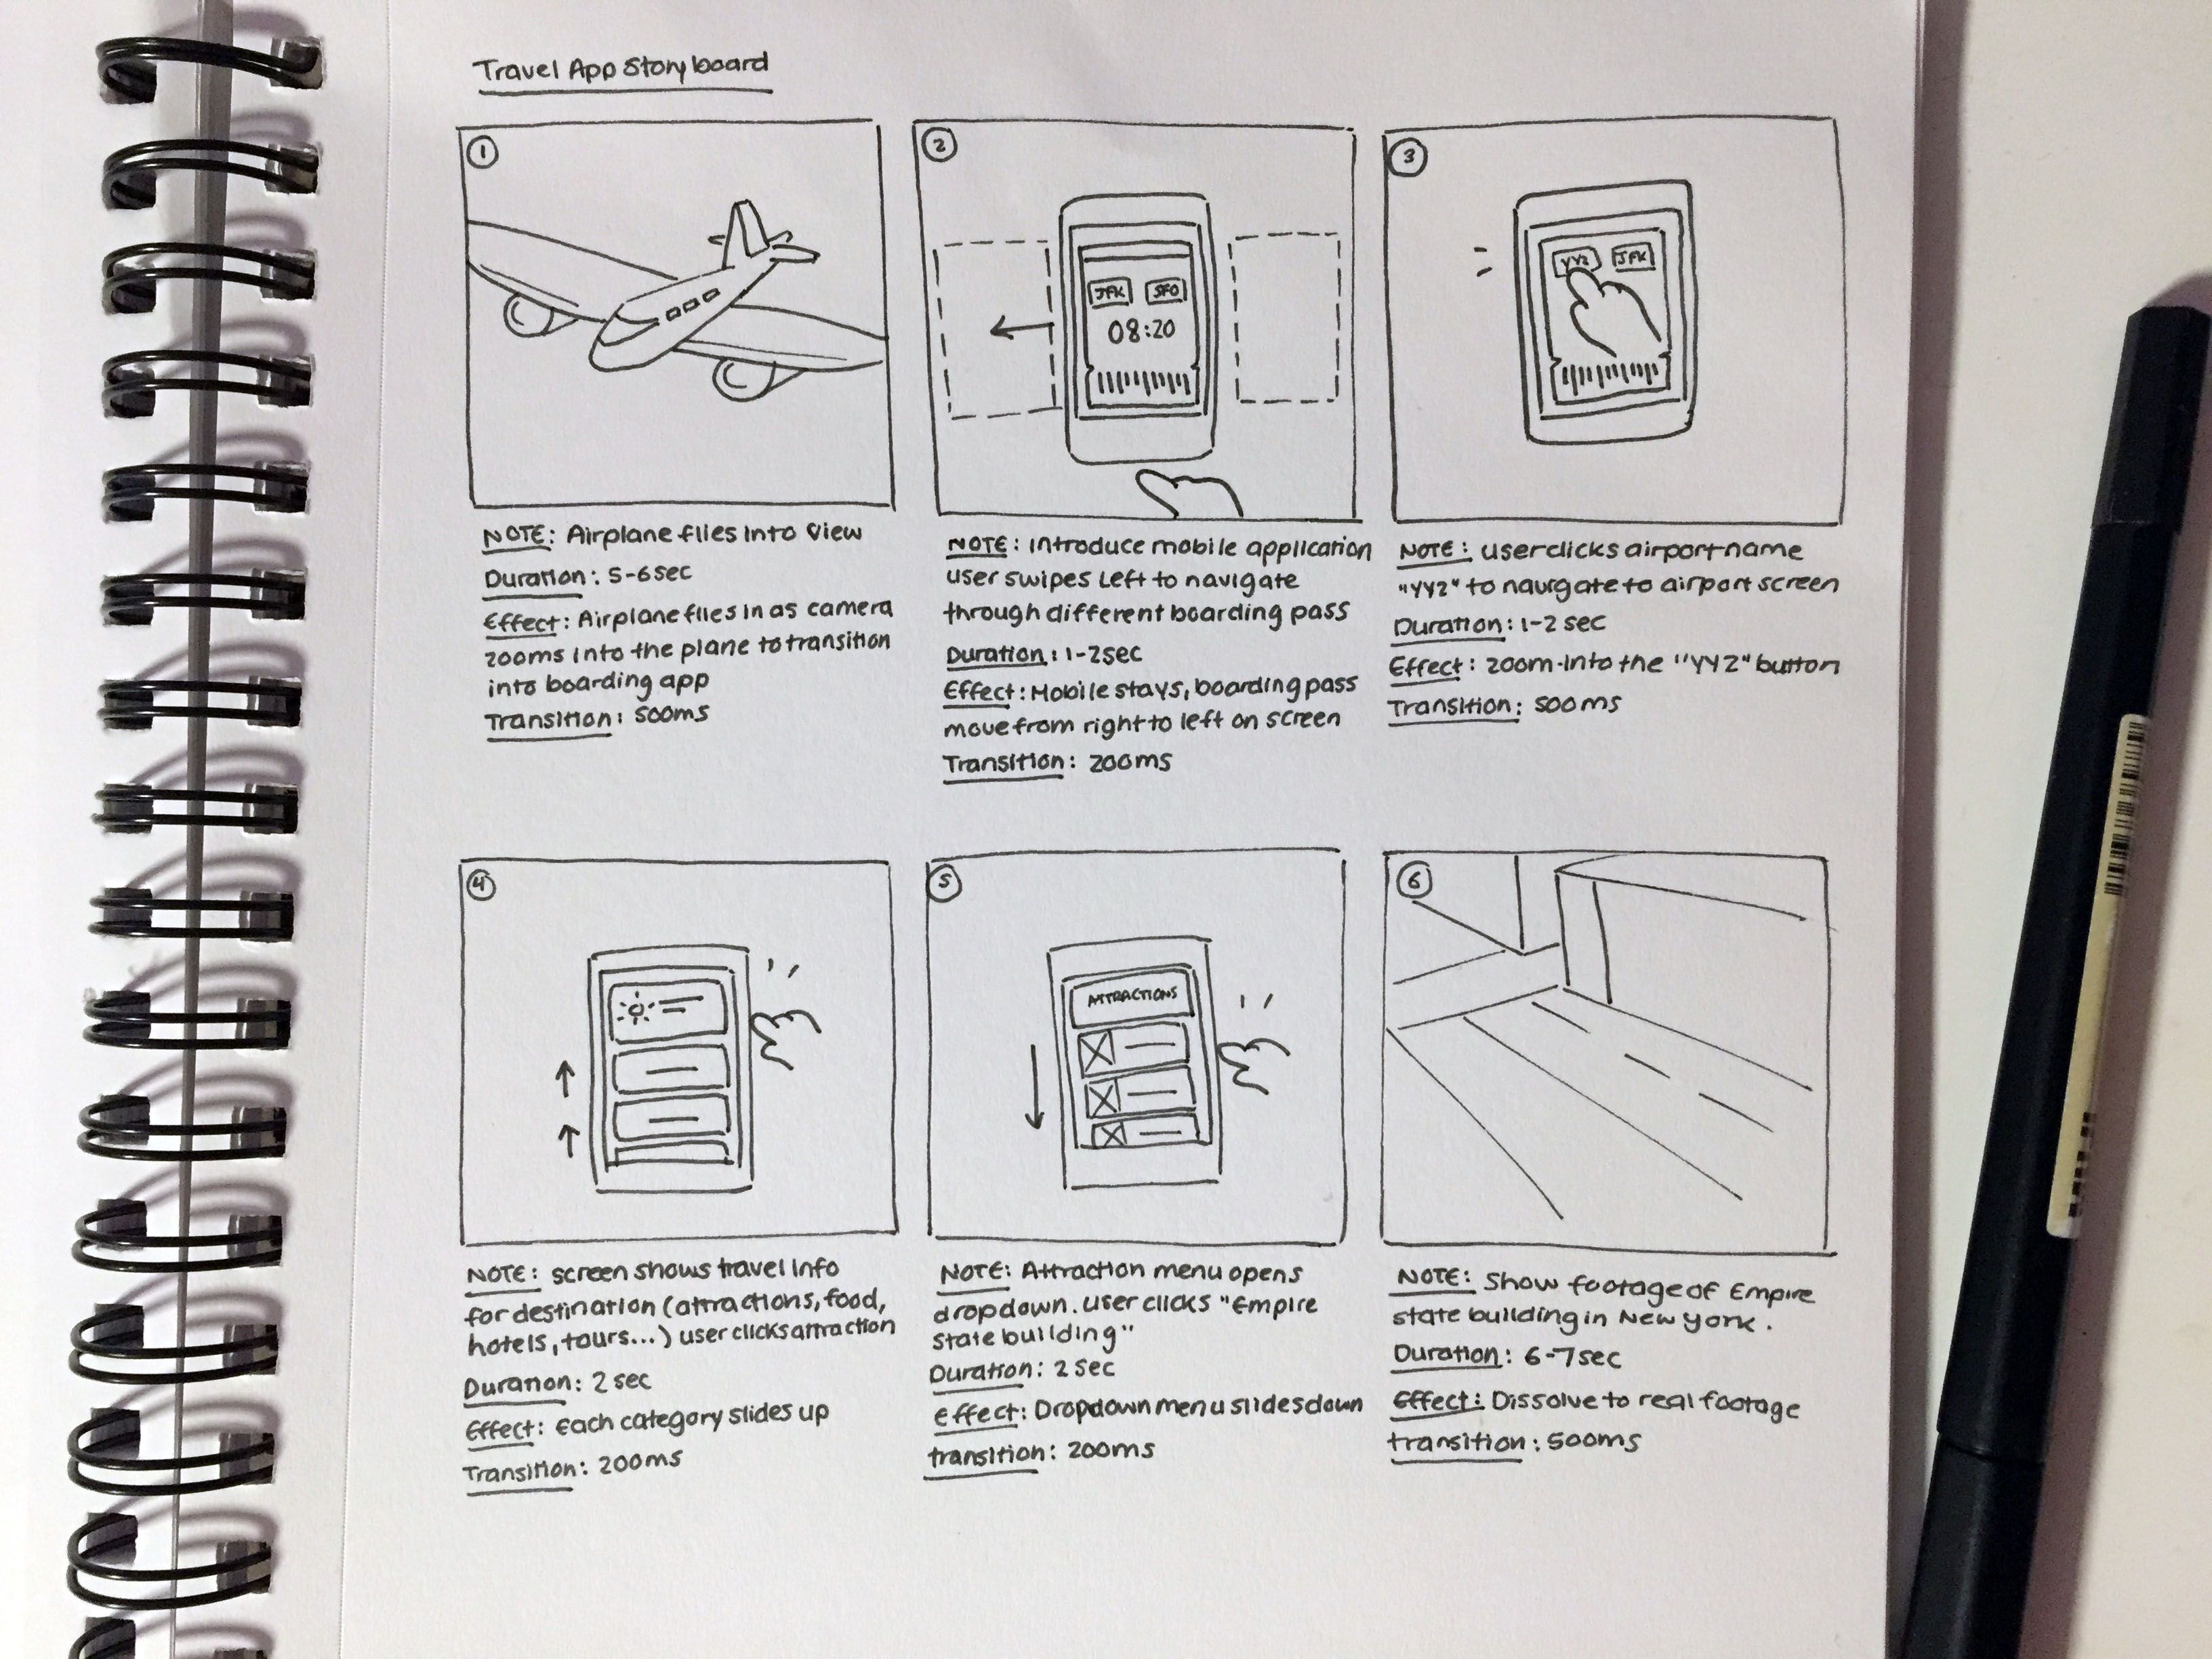 Travel App Storyboard
1
NOTE: Airplane flies into view
Duration: 5-6sec
Effect: Airplane flies in as camera
zooms into the plane to transition
into boarding app
Transition: 500ms
2
JFK SFO
08:20
NOTE: Introduce mobile application
user swipes left to navigate
through different boarding pass
Duration: 1-2sec
Effect: Mobile stays, boarding pass
move from right to left on screen
Transition: 200ms
3
YYZ JFK
NOTE: user clicks airport name
"YYZ" to navigate to airport screen
Duration: 1-2 sec
Effect: zoom-into the "YYZ" button
Transition: 500ms
4
NOTE: screen shows travel info
for destination (attractions, food,
hotels, tours...) user clicks attraction
Duration: 2 sec
Effect: Each category slides up
Transition: 200ms
5
ATTRACTIONS
NOTE: Attraction menu opens
dropdown. user clicks "Empire
state building"
Duration: 2 sec
Effect: Dropdown menu slides down
transition: 200ms
6
NOTE: Show footage of Empire
state building in New York.
Duration: 6-7sec
Effect: Dissolve to real footage
transition: 500ms